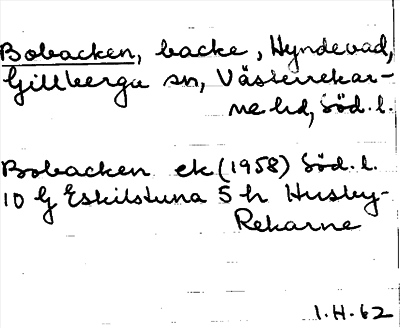 Bobacken, backe, Hyndevad,
Gillberga sn, Västerrekar-
ne hd, Söd. l.
Bobacken ek (1958) Söd. l.
10 G Eskilstuna 5 h Husby-
Rekarne
I.H. 62